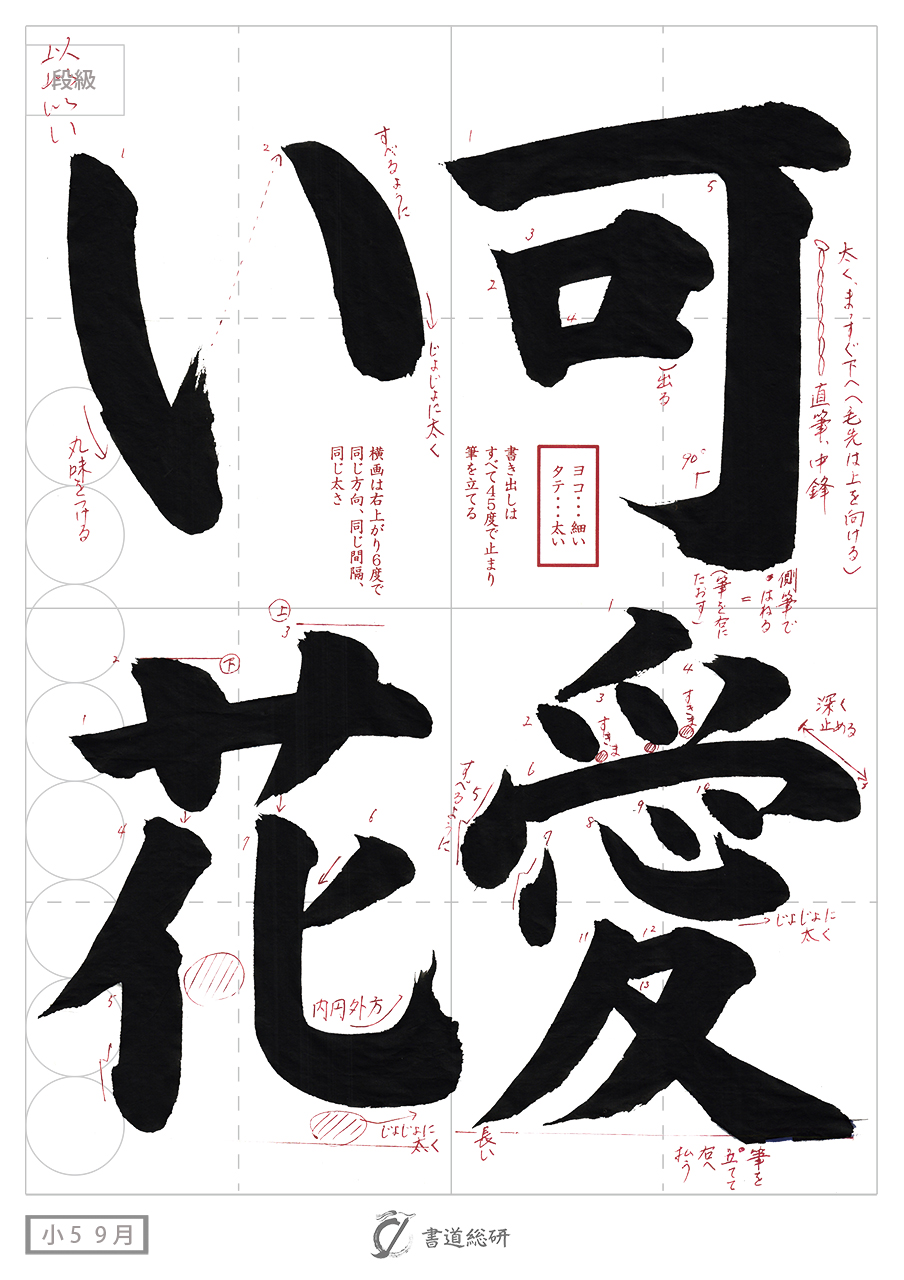 可愛い花
段級
以
い
太く、まっすぐ下へ(毛先は上を向ける)
直筆、中鋒
出る
90°
側筆で
はねる
(筆を右に
たおす)
すべるように
じょじょに太く
丸味をつける
ヨコ・・・細い
タテ・・・太い
書き出しは
すべて45度で止まり
筆を立てる
横画は右上がり6度で
同じ方向、同じ間隔、
同じ太さ
深く
止める
すきま
すきま
すべるように
じょじょに
太く
長い
筆を
立てて
右へ
払う
上
下
内円外方
じょじょに
太く
小5 9月
書道総研